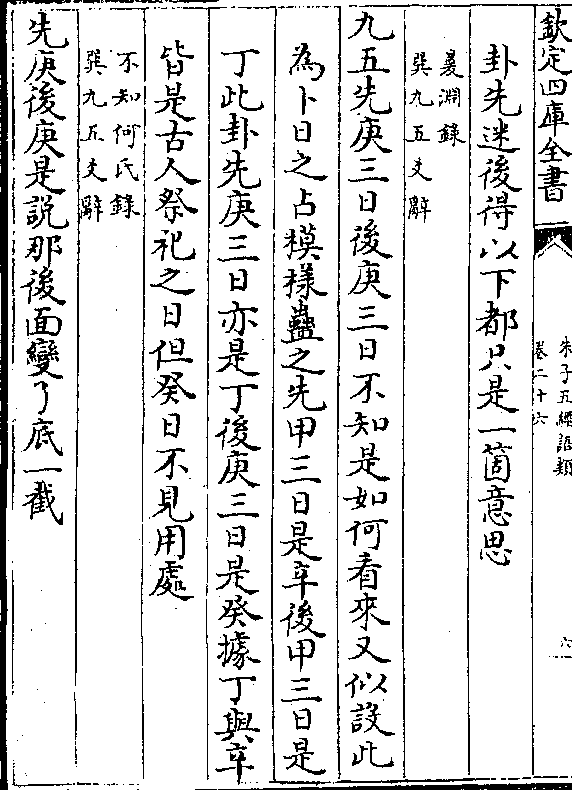 欽定四庫全書
朱子五經語類
卷二十六
六
卦先迷後得以下都只是一箇意思
㬊淵錄
巽九五爻辭
九五先庚三日後庚三日不知是如何看來又似設此
為卜日之占模樣蠱之先甲三日是辛後甲三日是
丁此卦先庚三日亦是丁後庚三日是癸據丁與辛
皆是古人祭祀之日但癸日不見用處
不知何氏錄
巽九五爻辭
先庚後庚是說那後面變了底一截